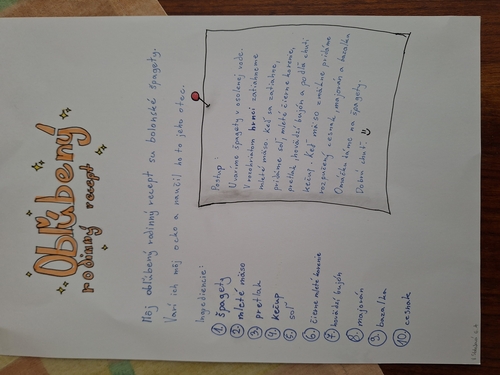 Obľúbený
rodinný recept
Môj obľúbený rodinný recept sú bolonské špagety.
Varí ich môj ocko a naučil ho to jeho otec.
Ingrediencie:
1. špagety
2. mleté mäso
3. pretlak
4. kečup
5. soľ
6. čierne mleté korenie
7. hovädzí bujón
8. majorán
9. bazalka
10. cesnak
Postup:
Uvaríme špagety v osolenej vode.
V rozohriatom hrnci zatiahneme
mleté mäso. Keď sa zatiahne,
pridáme soľ, mleté čierne korenie,
pretlak, hovädzí bujón a podľa chuti
kečup. Keď mäso zmäkne pridáme
roztlačený cesnak, majorán a bazalku
Omáčku dáme na špagety.
Dobrú chuť!